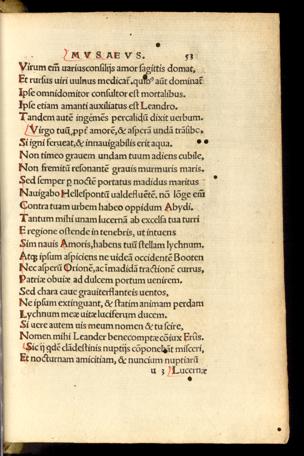 MVSAEVS. 53
Virum em̄ uarius consilijs amor sagittis domat,
Et rursus uiri uulnus medicat̄. quibꝰ aūt dominat̄
Ipse omnidomitor consultor est mortalibus.
Ipse etiam amanti auxiliatus est Leandro.
Tandem autē ingēmēs percalidū dixit uerbum.
Virgo tuū, ppt̄ amorē, & asperū undā trāsibo.
Si igni ferueat, & innauigabilis erit aqua.
Non timeo grauem undam tuum adiens cubile,
Non fremitū resonantē grauis murmuris maris.
Sed semper p noctē portatus madidus maritus
Nauigabo Hellespontū ualde fluētē, nō lōge em̄
Contra tuam urbem habeo oppidum Abydi.
Tantum mihi unam lucernā ab excelsa tua turri
E regione ostende in tenebris, ut intuens
Sim nauis Amoris, habens tuū stellam lychnum.
Atqꝫ ipsum aspiciens ne uideā occidentē Booten
Nec asperū Orionē, ac īmadidā tractionē currus,
Patriæ obuiæ ad dulcem portum uenirem.
Sed chara caue grauiter flanteis uentos,
Ne ipsum extinguant, & statim animam perdam
Lychnum meæ uitæ luciferum ducem.
Si uere autem uis meum nomen & tu scire,
Nomen mihi Leander bene comptæ cōiux Erūs.
Sic ij qdē clādestinis nuptijs cōponebāt misceri,
Et nocturnam amicitiam, & nuncium nuptiarū
u 3 Lucernæ